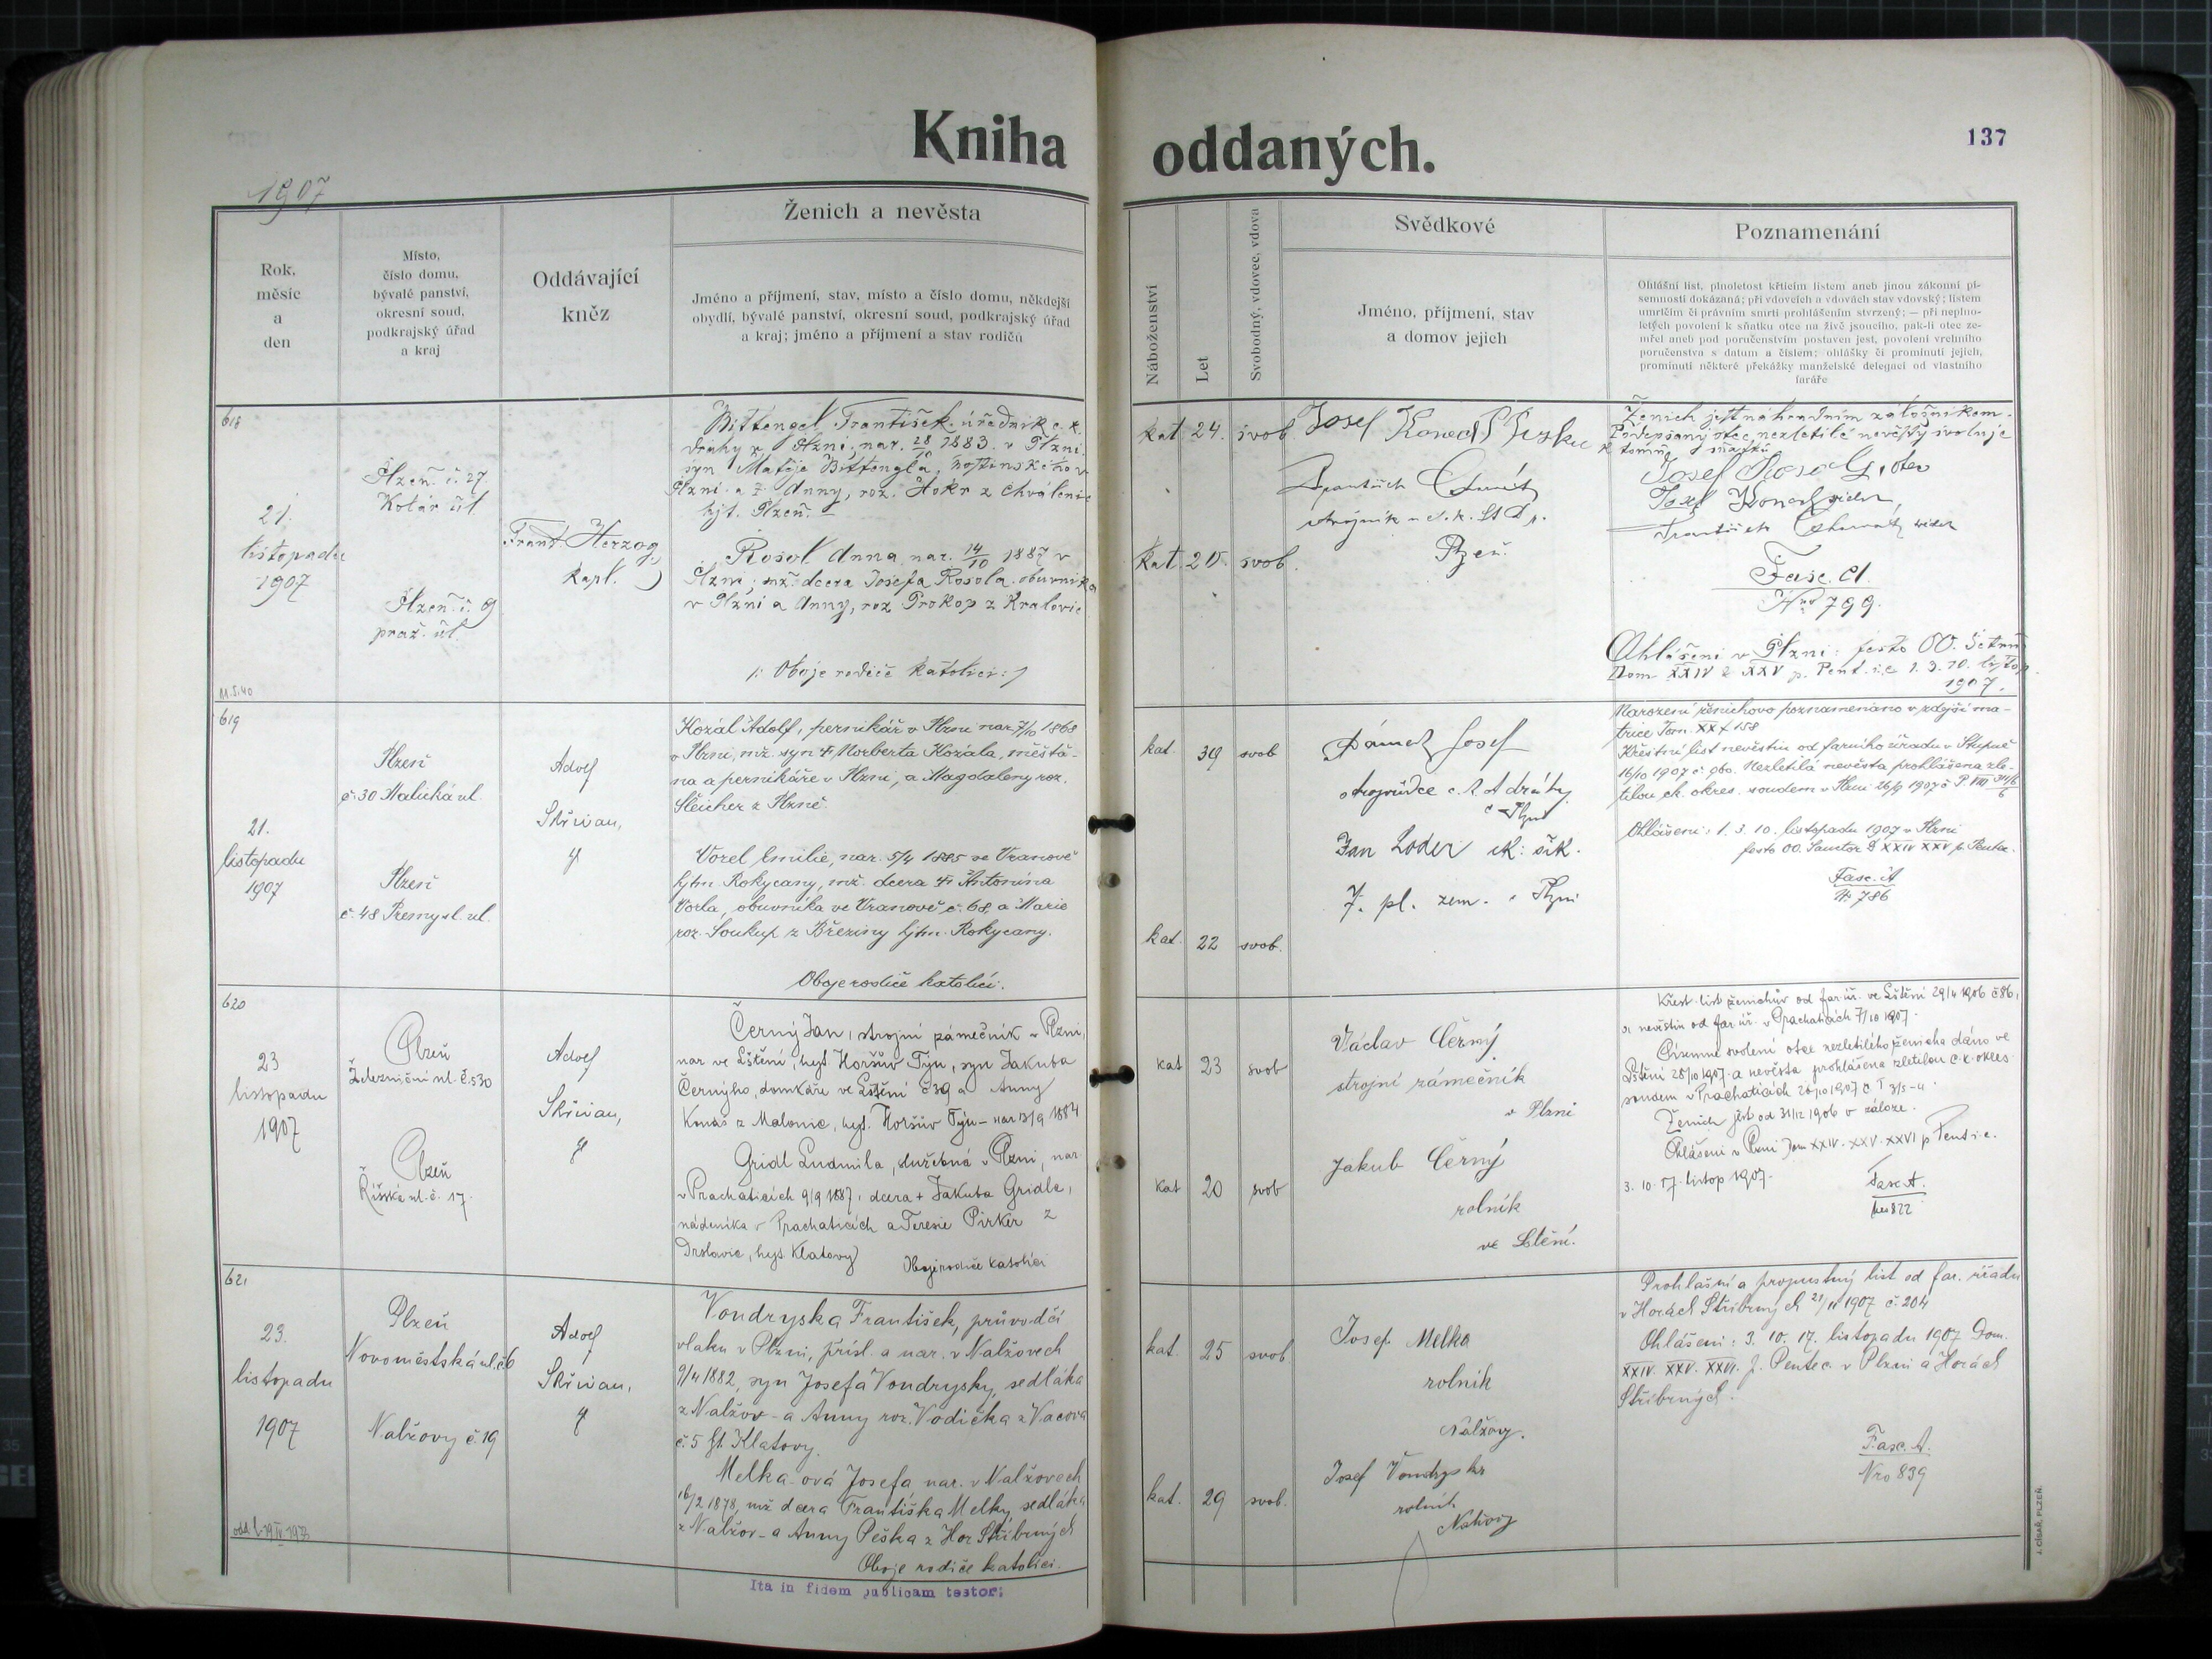 Kniha oddaných.
137
1907
Rok,
měsíc
a
den
Místo,
číslo domu,
bývalé panství,
okresní soud,
podkrajský úřad
a kraj
Oddávající
kněz
Ženich a nevěsta
Jméno a příjmení, stav, místo a číslo domu, někdejší
obydlí, bývalé panství, okresní soud, podkrajský úřad
a kraj; jméno a příjmení a stav rodičů
Náboženství
Let
Svobodný, vdovec, vdova
Svědkové
Jméno, příjmení, stav
a domov jejich
Poznamenání
Ohlášní list, plnoletost křticím listem aneb jinou zákonní pí-
semností dokázaná; při vdovcích a vdovách stav vdovský; listem
umrtčím či právním smrti prohlášením stvrzený; — při neplno-
letých povolení k sňatku otce na živě jsoucího, pak-li otec ze-
mřel aneb pod poručenstvím postaven jest, povolení vrchního
poručenstva s datum a číslem; ohlášky či prominutí jejich,
prominutí některé překážky manželské delegací od vlastního
faráře
618
21.
listopadu
1907
11.5.40
Plzeň č. 27
Kolár úl.
Plzeň č. 9
praž. úl.
Frant Herzog,
kapl.
Bittengel František, úředník c. k.
dráhy v Plzni, nar. 1883 v Plzni,
syn Matěje Bittengla, v
Plzni a Anny, roz. Hokr z Chválenic
hjt. Plzeň.
Rosol Anna nar. 14/10 1887 v
Plzni, mž. dcera Josefa Rosola, obuvníka
v Plzni a Anny, roz Prokop z Kralovic
/: Oboje rodiče katolíci :/
kat. 24. svob.
kat. 20. svob.
Josef
František
Plzeň.
Ženich jest náhradním záložníkem.
Podepsaný otec nezletilé nevěsty svoluje
k tomuto sňatku
Josef Rosol, otec
Josef
František
Fasc. A.
Nro 799.
Ohlášeni v Plzni: festo OO. Sctrum
Dom XXIV & XXV p. Pent. i.e 1. 3. 10. listop.
1907.
619
21.
listopadu
1907
Plzeň
č. 30 Malická ul.
Plzeň
č. 48 Přemysl. ul.
Adolf
Skřivan,
Kozál Adolf, pernikář v Plzni nar. 7/10 1868
v Plzni, mž. syn † Norberta Kozála, měšťa-
na a pernikáře v Plzni, a Magdaleny roz.
Sleicher z Plzně.
Vorel Emilie, nar. 5/4 1885 ve Vranově
hjtm. Rokycany, mž. dcera † Antonína
Vorla, obuvníka ve Vranově č. 68, a Marie
roz. Soukup z Březiny hjtm. Rokycany.
Oboje rodiče katolíci.
kat. 39 svob
kat. 22 svob.
Josef
strojvůdce c. k. st dráhy
v Plzni
Jan Loder ck: šik.
7. pl. zem. v Plzni
Narození ženichovo poznamenáno v zdejší ma-
trice Tom. XX f 158
Křestní list nevěstin od farního úřadu v Stupně
16/10 1907 č. 960. Nezletilá nevěsta prohlášena zle-
tilou ck. okres. soudem v Plzni 26/9 1907 č P. VIII
Ohlášeni: 1. 3. 10. listopadu 1907 v Plzni
festo OO. Sanctor D XXIV XXV p. Pentec.
Fasc. A
N. 786
620
23
listopadu
1907
Plzeň
Železniční ul. č. 530
Plzeň
Říšská ul. č. 17.
Adolf
Skřivan,
Černý Jan, strojní zámečník v Plzni,
nar ve Lštění, hejt. Horšův Týn, syn Jakuba
Černýho, domkáře ve Lštění č 39 a Anny
Konáš z Malonic, hejt. Horšův Týn - nar 13/9 1884
Gridl Ludmila, služebná v Plzni, nar.
v Prachaticích 9/9 1887, dcera + Jakuba Gridla,
nádeníka v Prachaticích a Teresie Pirker z
Drslavic, hejt. Klatovy)
Oboje rodiče katolíci
kat 23 svob
kat 20 svob
Václav Černý
strojní zámečník
v Plzni
Jakub Černý
rolník
ve Lštění.
Křest. list ženichův od far. úř. ve Lštění 29/4 1906 č 86,
a nevěstin od far. úř. v Prachaticích 7/10 1907.
Písemné svolení otce nezletilého ženicha dáno ve
Lštění 28/10 1907 a nevěsta prohlášena zletilou c. k. okres.
soudem v Prachaticích 26/10 1907 č
Ženich jest od 31/12 1906 v záloze.
Ohlášeni v Plzni Dom XXIV. XXV. XXVI p Pent i e.
3. 10. 17. listop 1907.
Fasc A.
Nro 822
621
23.
listopadu
1907
Plzeň
Novoměstská ul. č 6
Nalžovy č. 19
Adolf
Skřivan,
Vondryska František, průvodčí
vlaku v Plzni, přísl. a nar. v Nalžovech
9/4 1882, syn Josefa Vondrysky, sedláka
z Nalžov - a Anny roz. Vodička z Vacova
č. 5 ht. Klatovy.
Melka-ová Josefa, nar. v Nalžovech
16/2 1878, mž dcera Františka Melky, sedláka
z Nalžov - a Anny Peška z Hor Stříbrných
Oboje rodiče katolíci.
Ita in fidem publicam testor:
kat. 25 svob
kat. 29 svob.
Josef Melka
rolník
Nalžovy.
Josef Vondryska
rolník
Nalžovy
Prohlášní a propustný list od far. úřadu
v Horách Stříbrných 21/11 1907 č. 204
Ohlášeni: 3. 10. 17. listopadu 1907 Dom.
XXIV. XXV. XXVI. p. Pentec. v Plzni a Horách
Stříbrných.
Fasc. A.
Nro 839
J. CÍSAŘ, PLZEŇ.